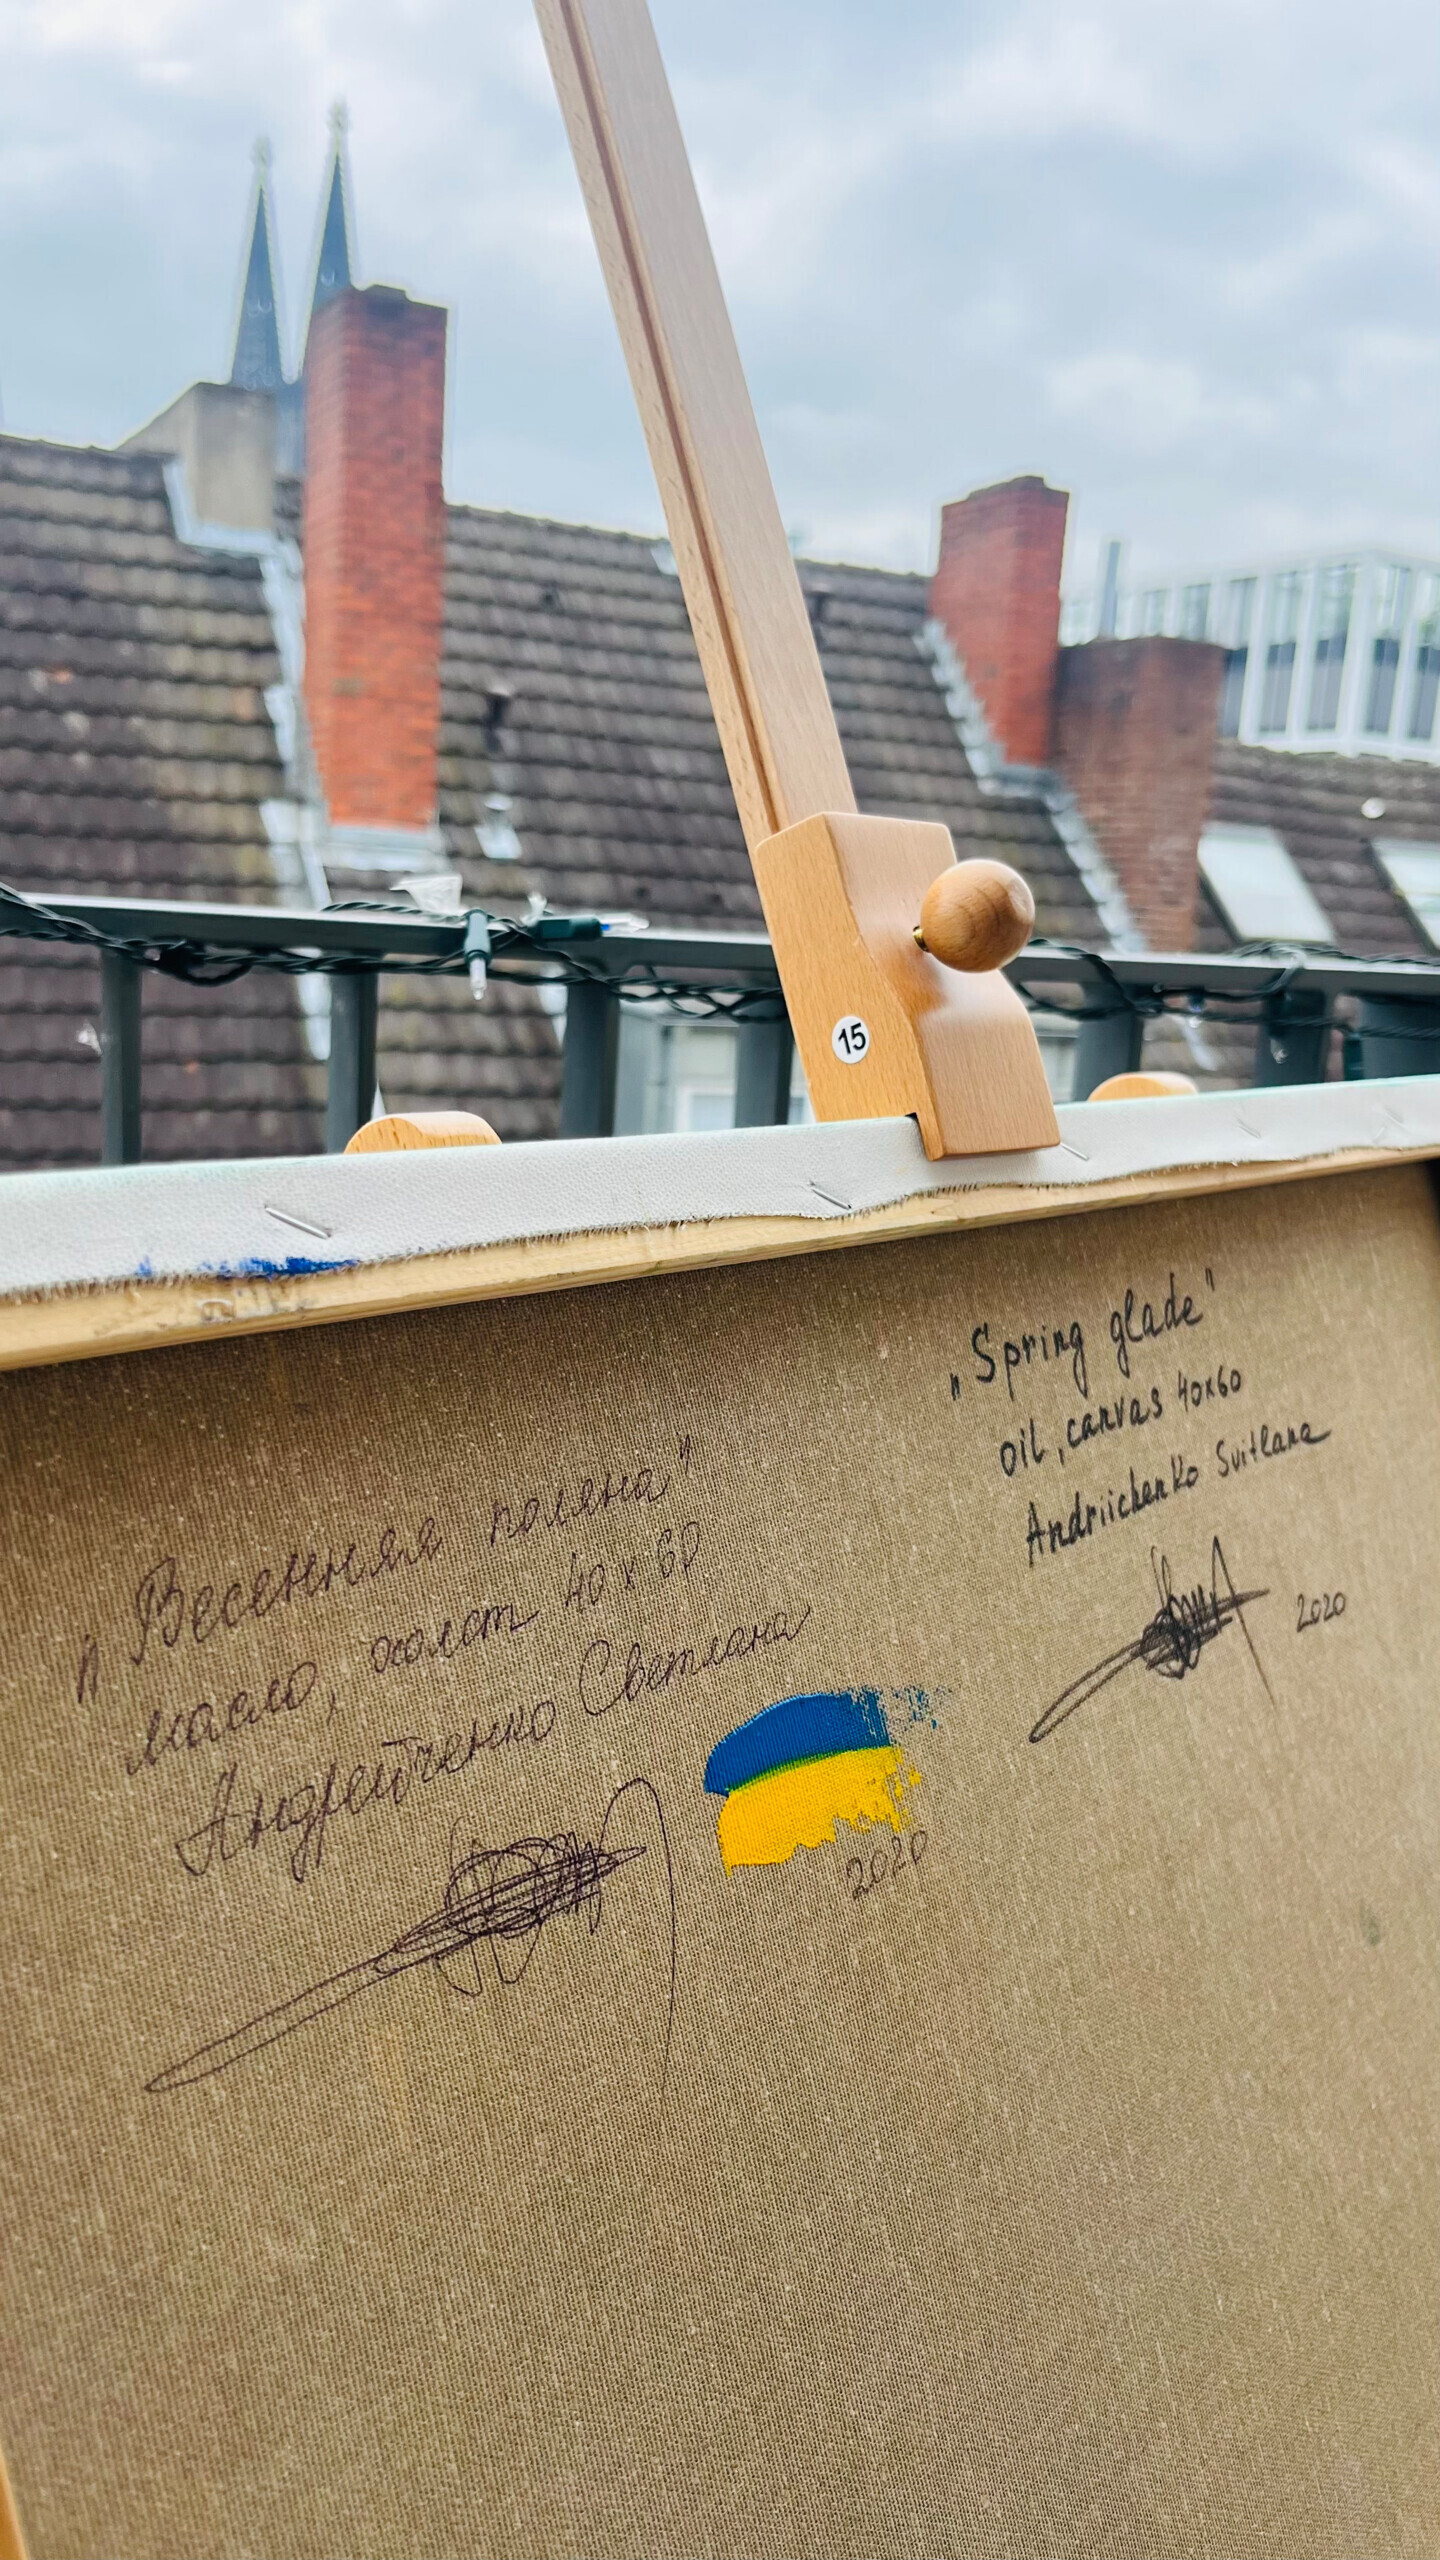 15
„Весенняя поляна"
масло, холст 40x60
Андрейченко Светлана
2020
„Spring glade"
oil, canvas 40x60
Andriichenko Svitlana
2020